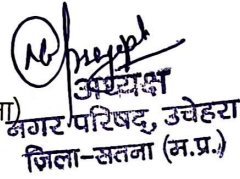 अध्यक्ष
ा)
नगर परिषद्, उचेहरा
ज़िला-सतना (म.प्र.)